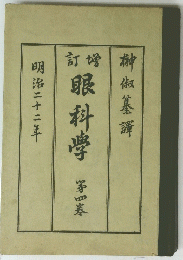 榊俶纂譯
增訂
眼科學
第四卷
明治二十二年